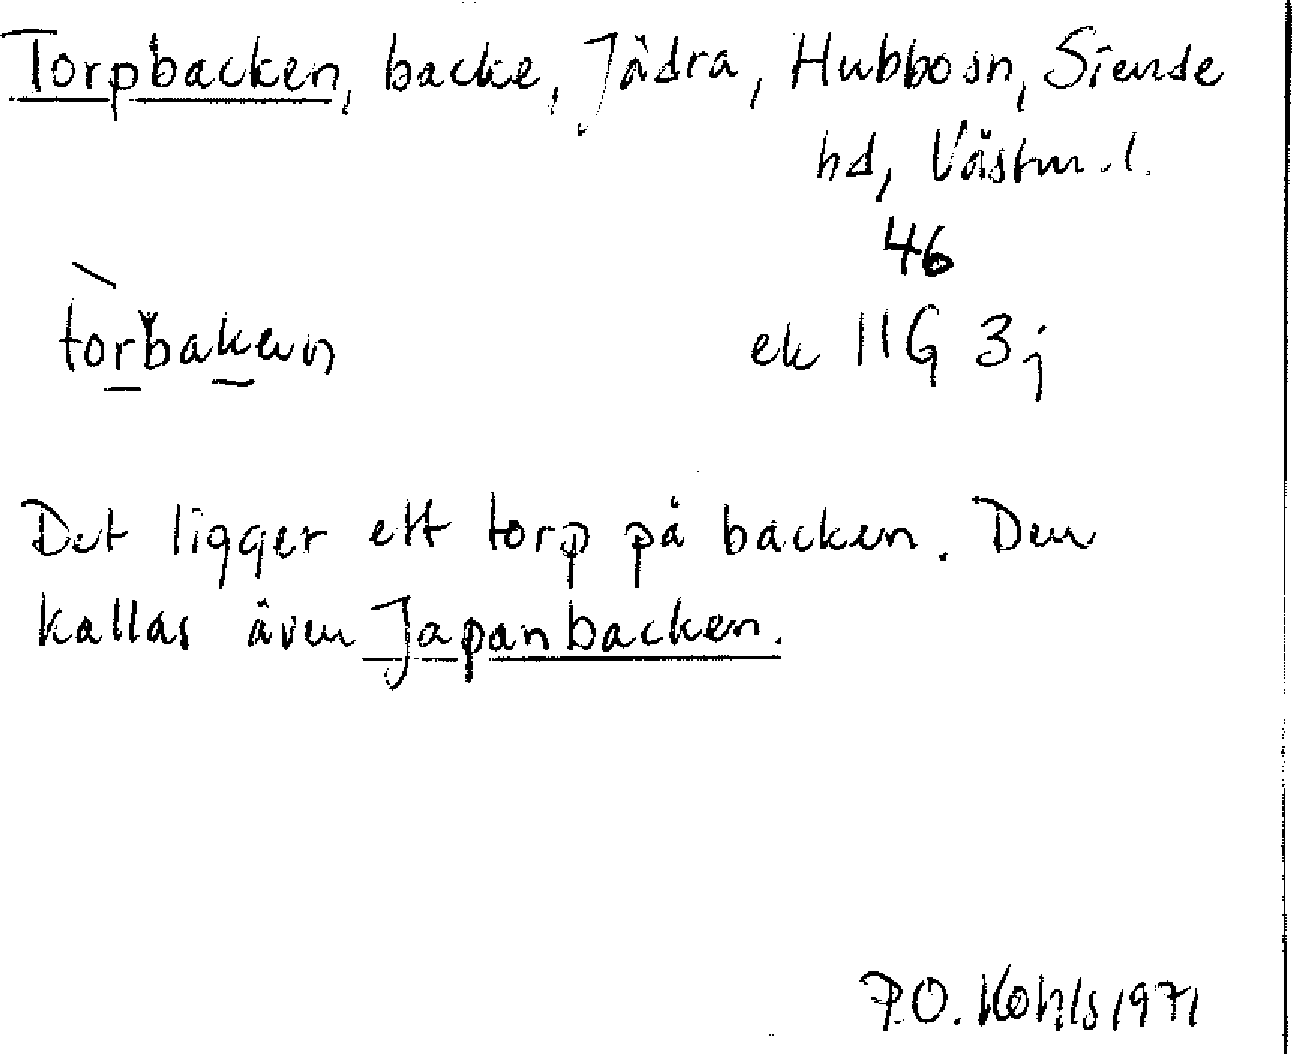 Torpbacken, backe, Jädra, Hubbo sn, Siende
hd, Västm. l.
46
tòrbaken ek 11G 3j
Det ligger ett torp på backen. Den
kallas även Japanbacken.
P.O. Kohls 1971